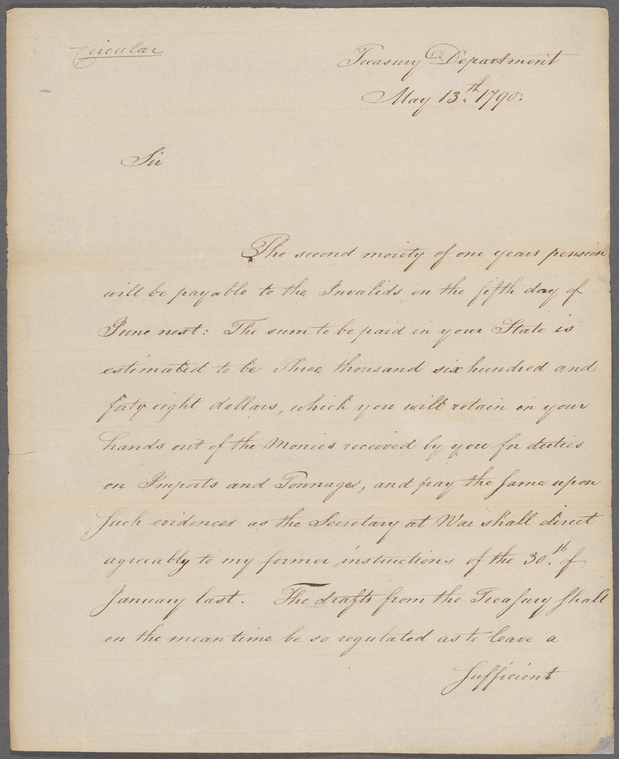 Circular
Treasury Department
May 13.th 1790.
Sir
The second moiety of one years pension
will be payable to the Invalids on the fifth day of
June next: The sum to be paid in your State is
estimated to be Three thousand six hundred and
forty eight dollars, which you will retain in your
hands out of the Monies received by you for duties
on Imports and Tonnages, and pay the same upon
such evidences as the Secretary at War shall direct
agreeably to my former instructions of the 30.th of
January last. The drafts from the Treasury shall
in the mean time be so regulated as to leave a
sufficient